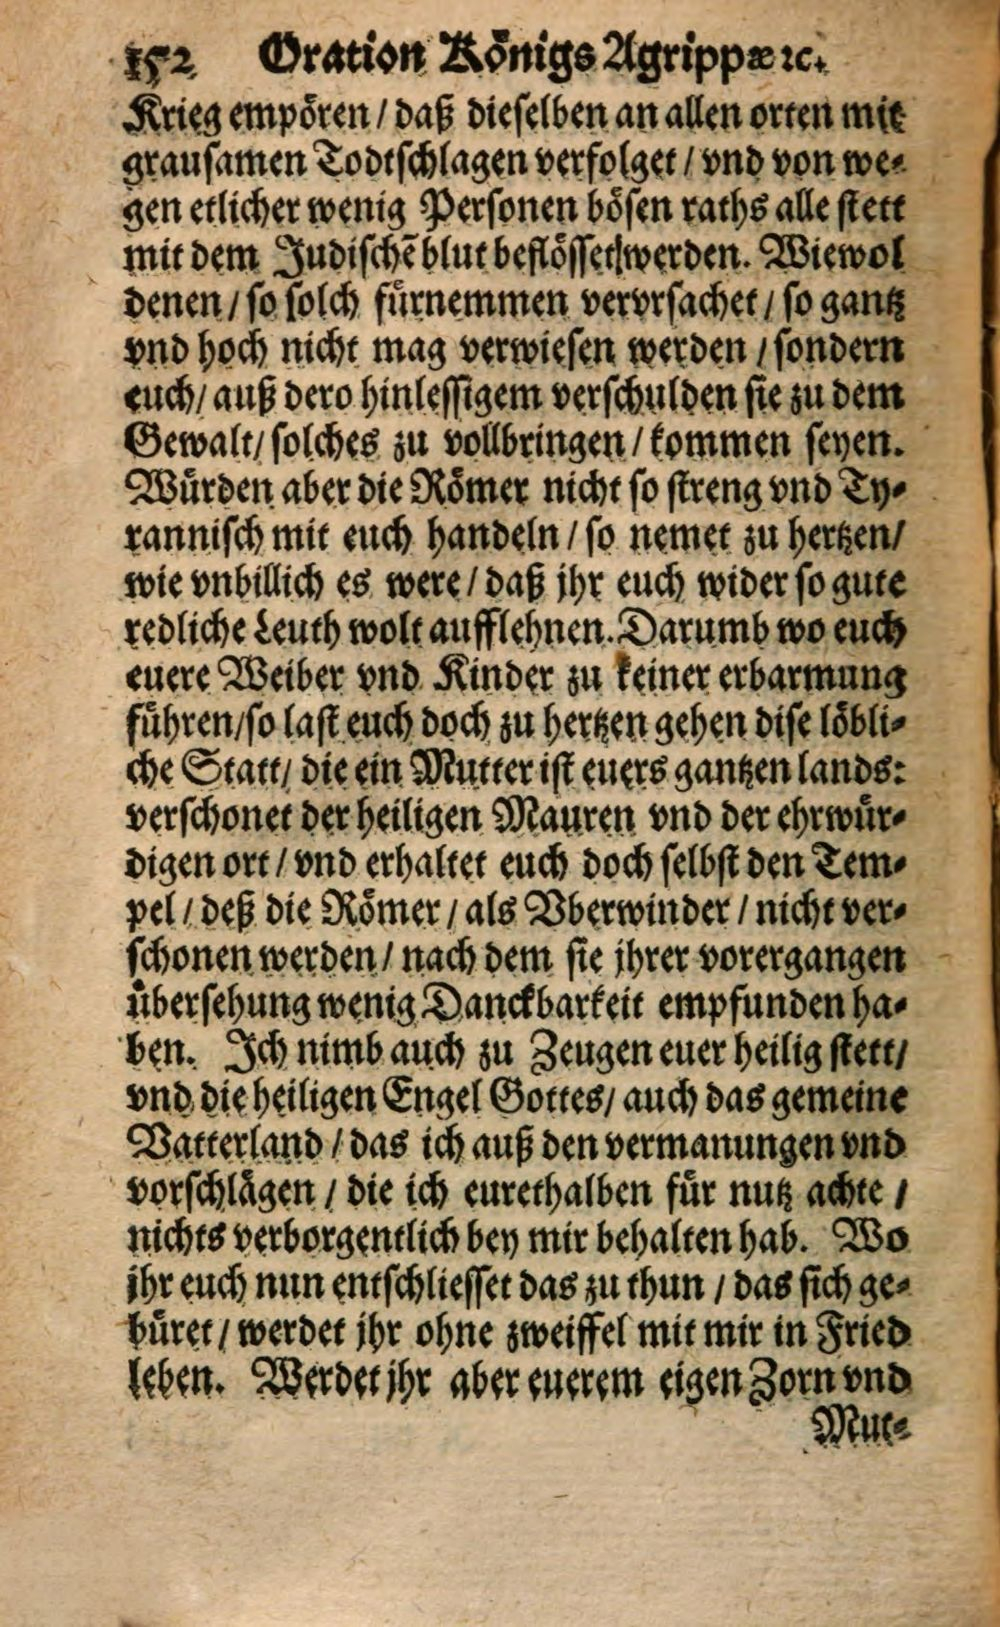 152 Oration Königs Agrippæ ꝛc.
Krieg empören / daß dieselben an allen orten mit
grausamen Todtschlagen verfolget / vnd von we-
gen etlicher wenig Personen bösen raths alle stett
mit dem Judischẽ blut beflösset werden. Wiewol
denen / so solch fürnemmen vervrsachet / so gantz
vnd hoch nicht mag verwiesen werden / sondern
euch / auß dero hinlessigem verschulden sie zu dem
Gewalt / solches zu vollbringen / kommen seyen.
Würden aber die Römer nicht so streng vnd Ty-
rannisch mit euch handeln / so nemet zu hertzen /
wie vnbillich es were / daß jhr euch wider so gute
redliche Leuth wolt aufflehnen. Darumb wo euch
euere Weiber vnd Kinder zu keiner erbarmung
führen / so last euch doch zu hertzen gehen dise löbli-
che Statt / die ein Mutter ist euers gantzen lands:
verschonet der heiligen Mauren vnd der ehrwür-
digen ort / vnd erhaltet euch doch selbst den Tem-
pel / deß die Römer / als Vberwinder / nicht ver-
schonen werden / nach dem sie jhrer vorergangen
übersehung wenig Danckbarkeit empfunden ha-
ben. Ich nimb auch zu Zeugen euer heilig stett /
vnd die heiligen Engel Gottes / auch das gemeine
Vatterland / das ich auß den vermanungen vnd
vorschlägen / die ich eurethalben für nutz achte /
nichts verborgentlich bey mir behalten hab. Wo
jhr euch nun entschliesset das zu thun / das sich ge-
büret / werdet jhr ohne zweiffel mit mir in Fried
leben. Werdet jhr aber euerem eigen Zorn vnd
Mut-